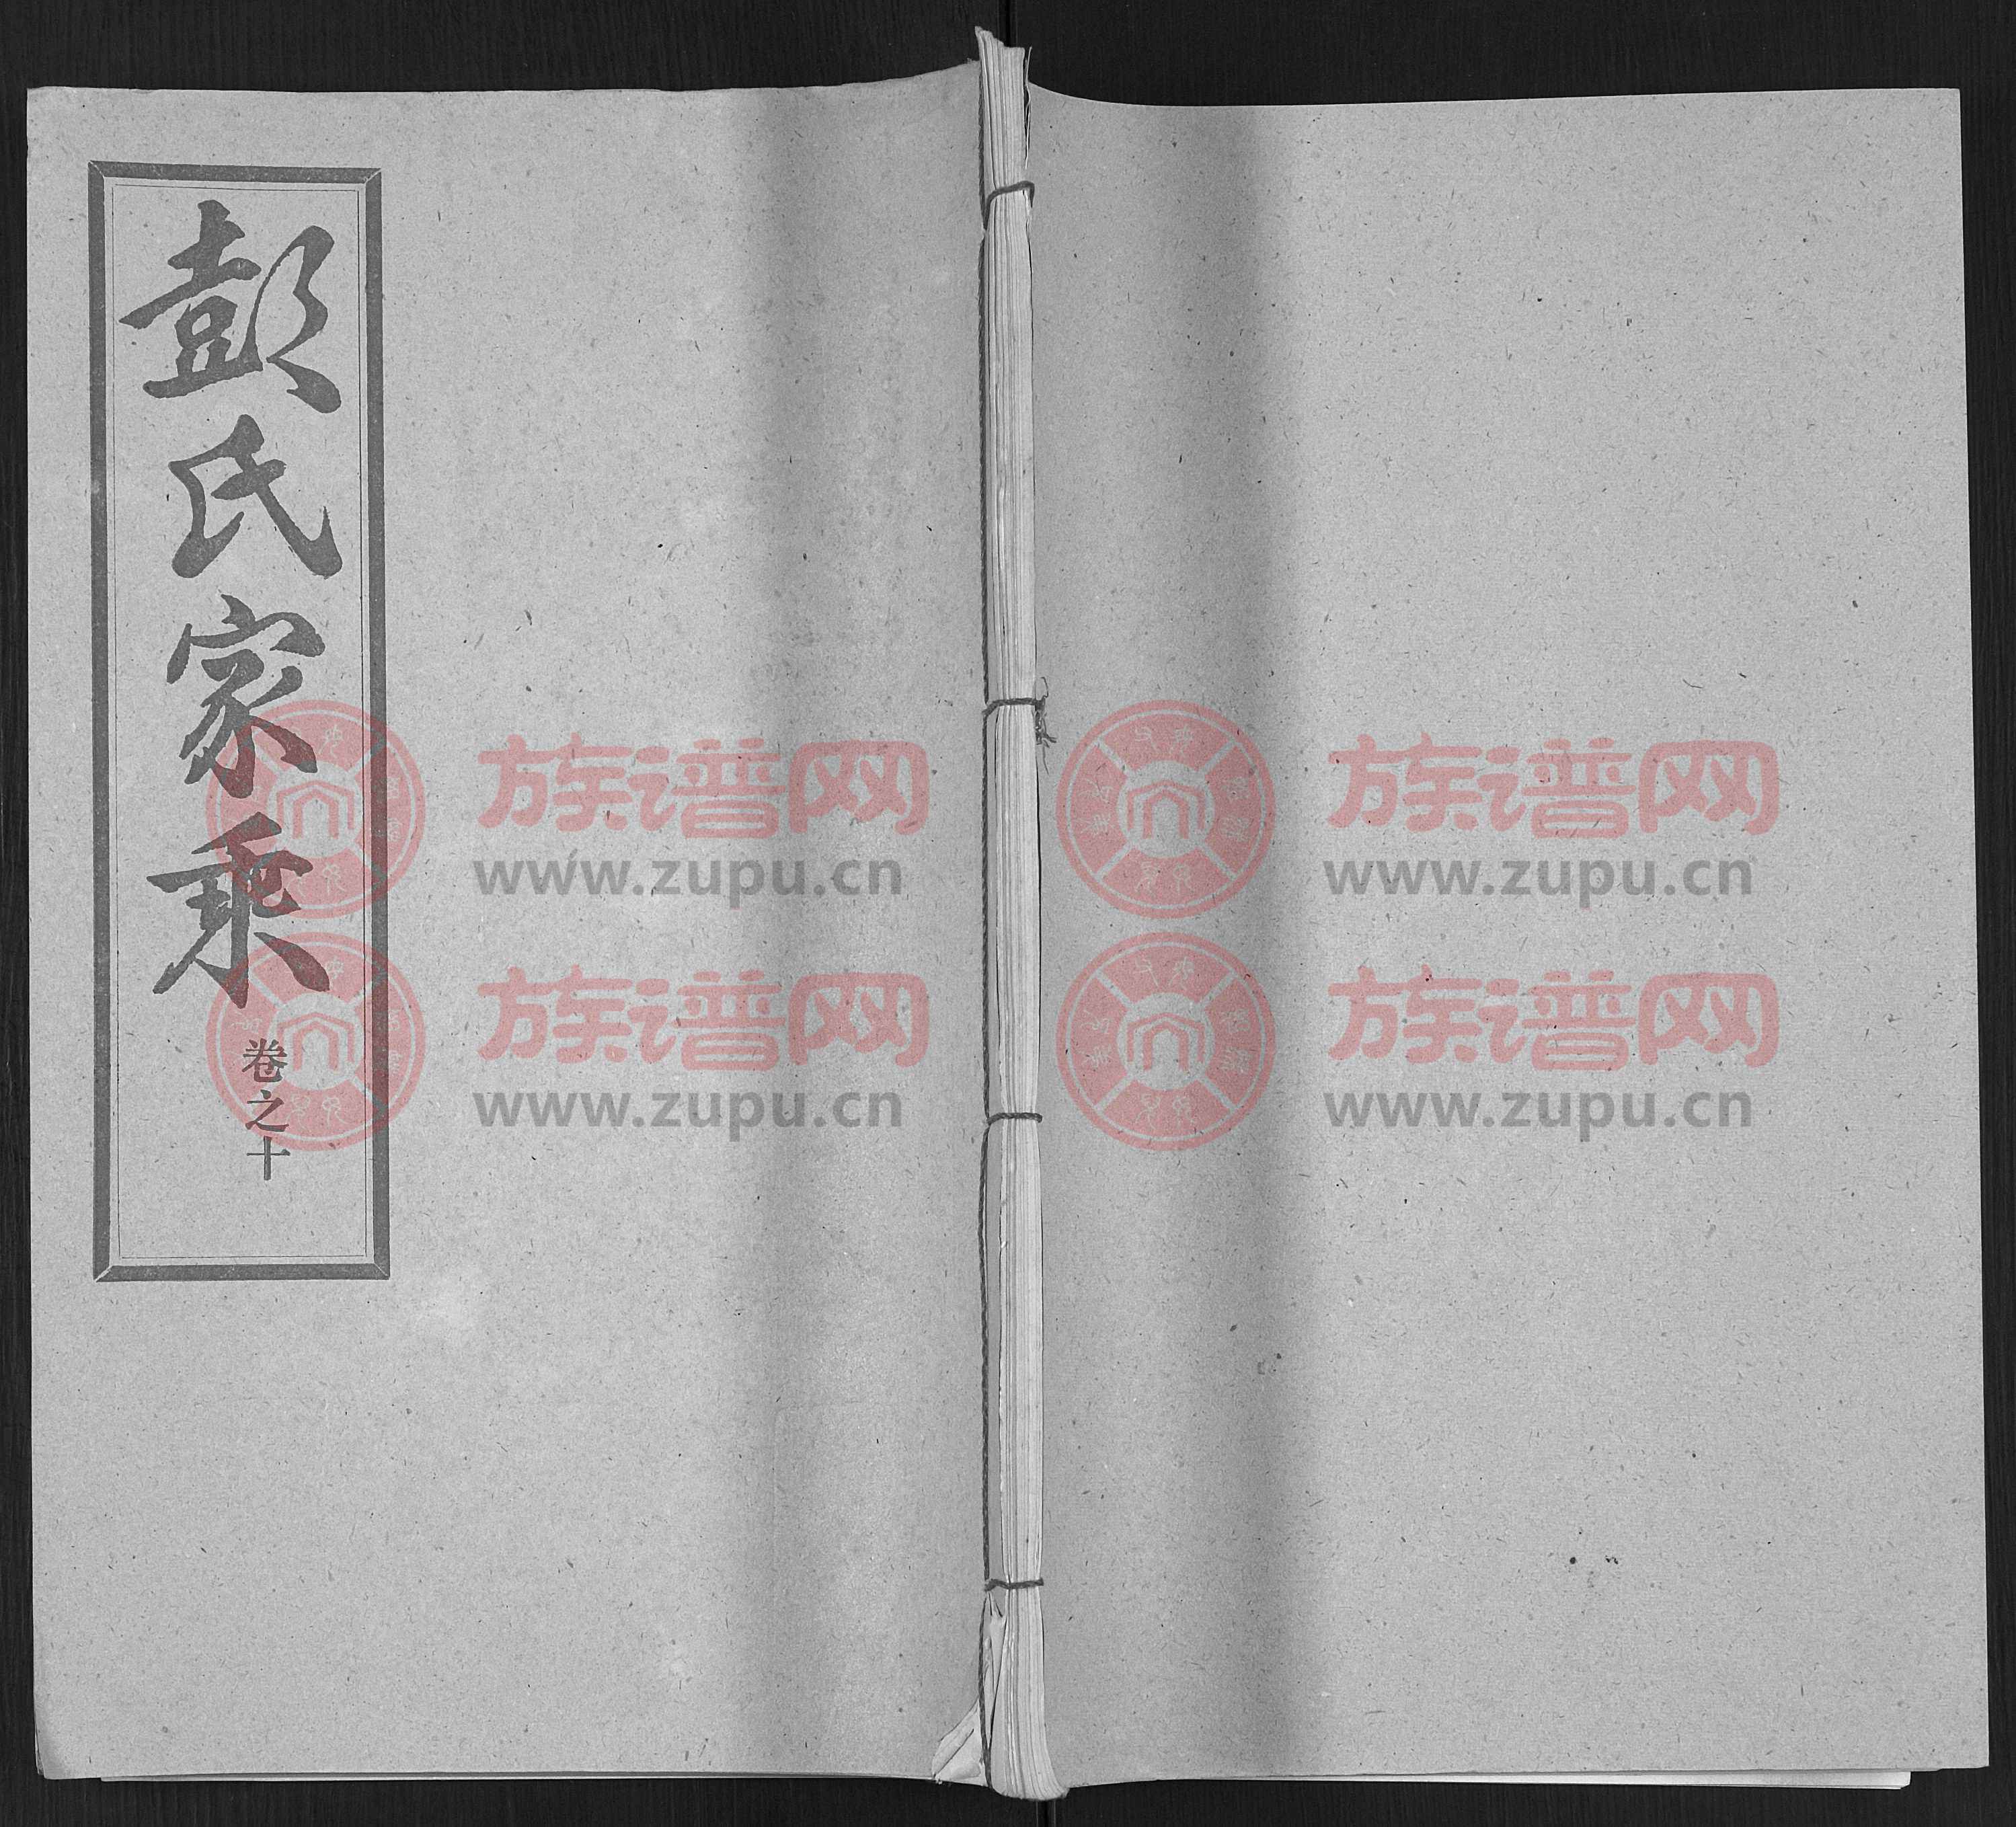 彭氏家乘
卷之十
族谱网
www.zupu.cn
族谱网
www.zupu.cn
族谱网
www.zupu.cn
族谱网
www.zupu.cn